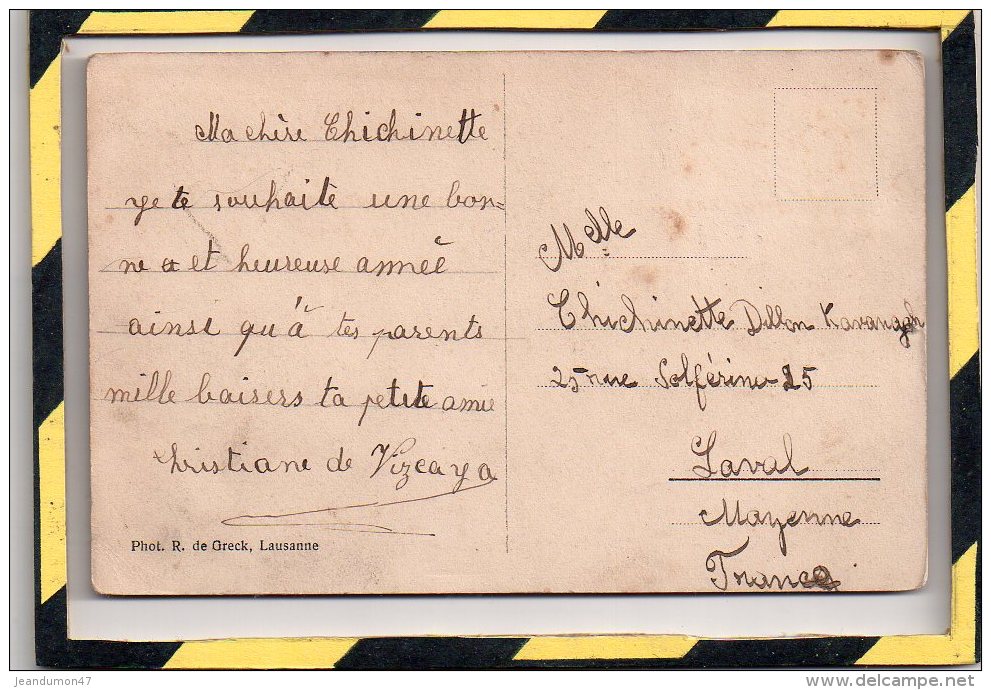 Ma chère Chichinette
je te souhaite une bon=
ne et heureuse année
ainsi qu'à tes parents
mille baisers ta petite amie
Christiane de Vizcaya
Phot. R. de Greck, Lausanne
Melle
Chichinette Dillon Kavanagh
25 rue Solférino 25
Laval
Mayenne
France
jeandumon47
delcampe.net